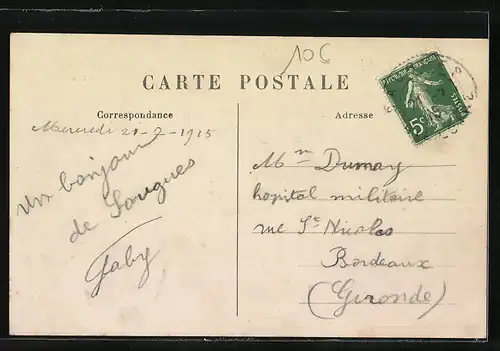 10€
CARTE POSTALE
REPUBLIQUE FRANÇAISE
POSTES
5c
Correspondance
Mercredi 21-7-1915
un bonjour
de Saugues
Gaby
Adresse
Mr Dumay
hopital militaire
rue St Nicolas
Bordeaux
(Gironde)